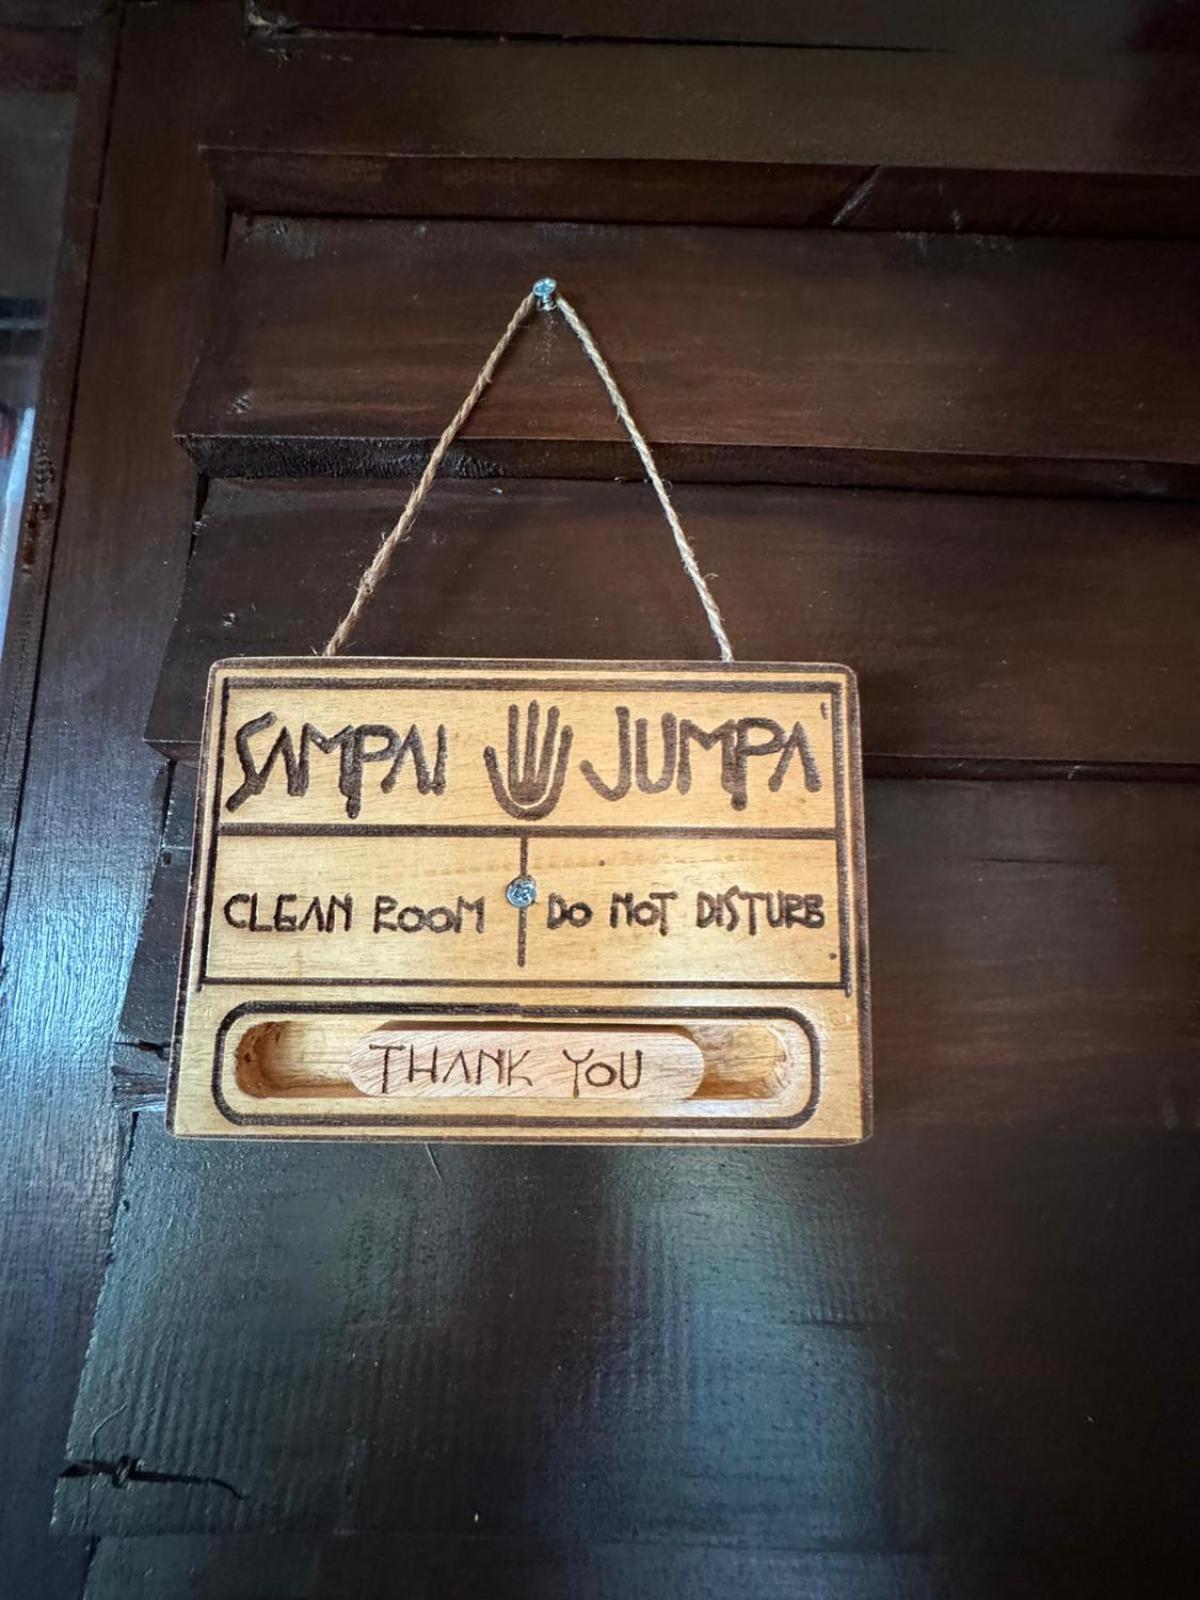 SAMPAI JUMPA
CLEAN ROOM DO NOT DISTURB
THANK YOU